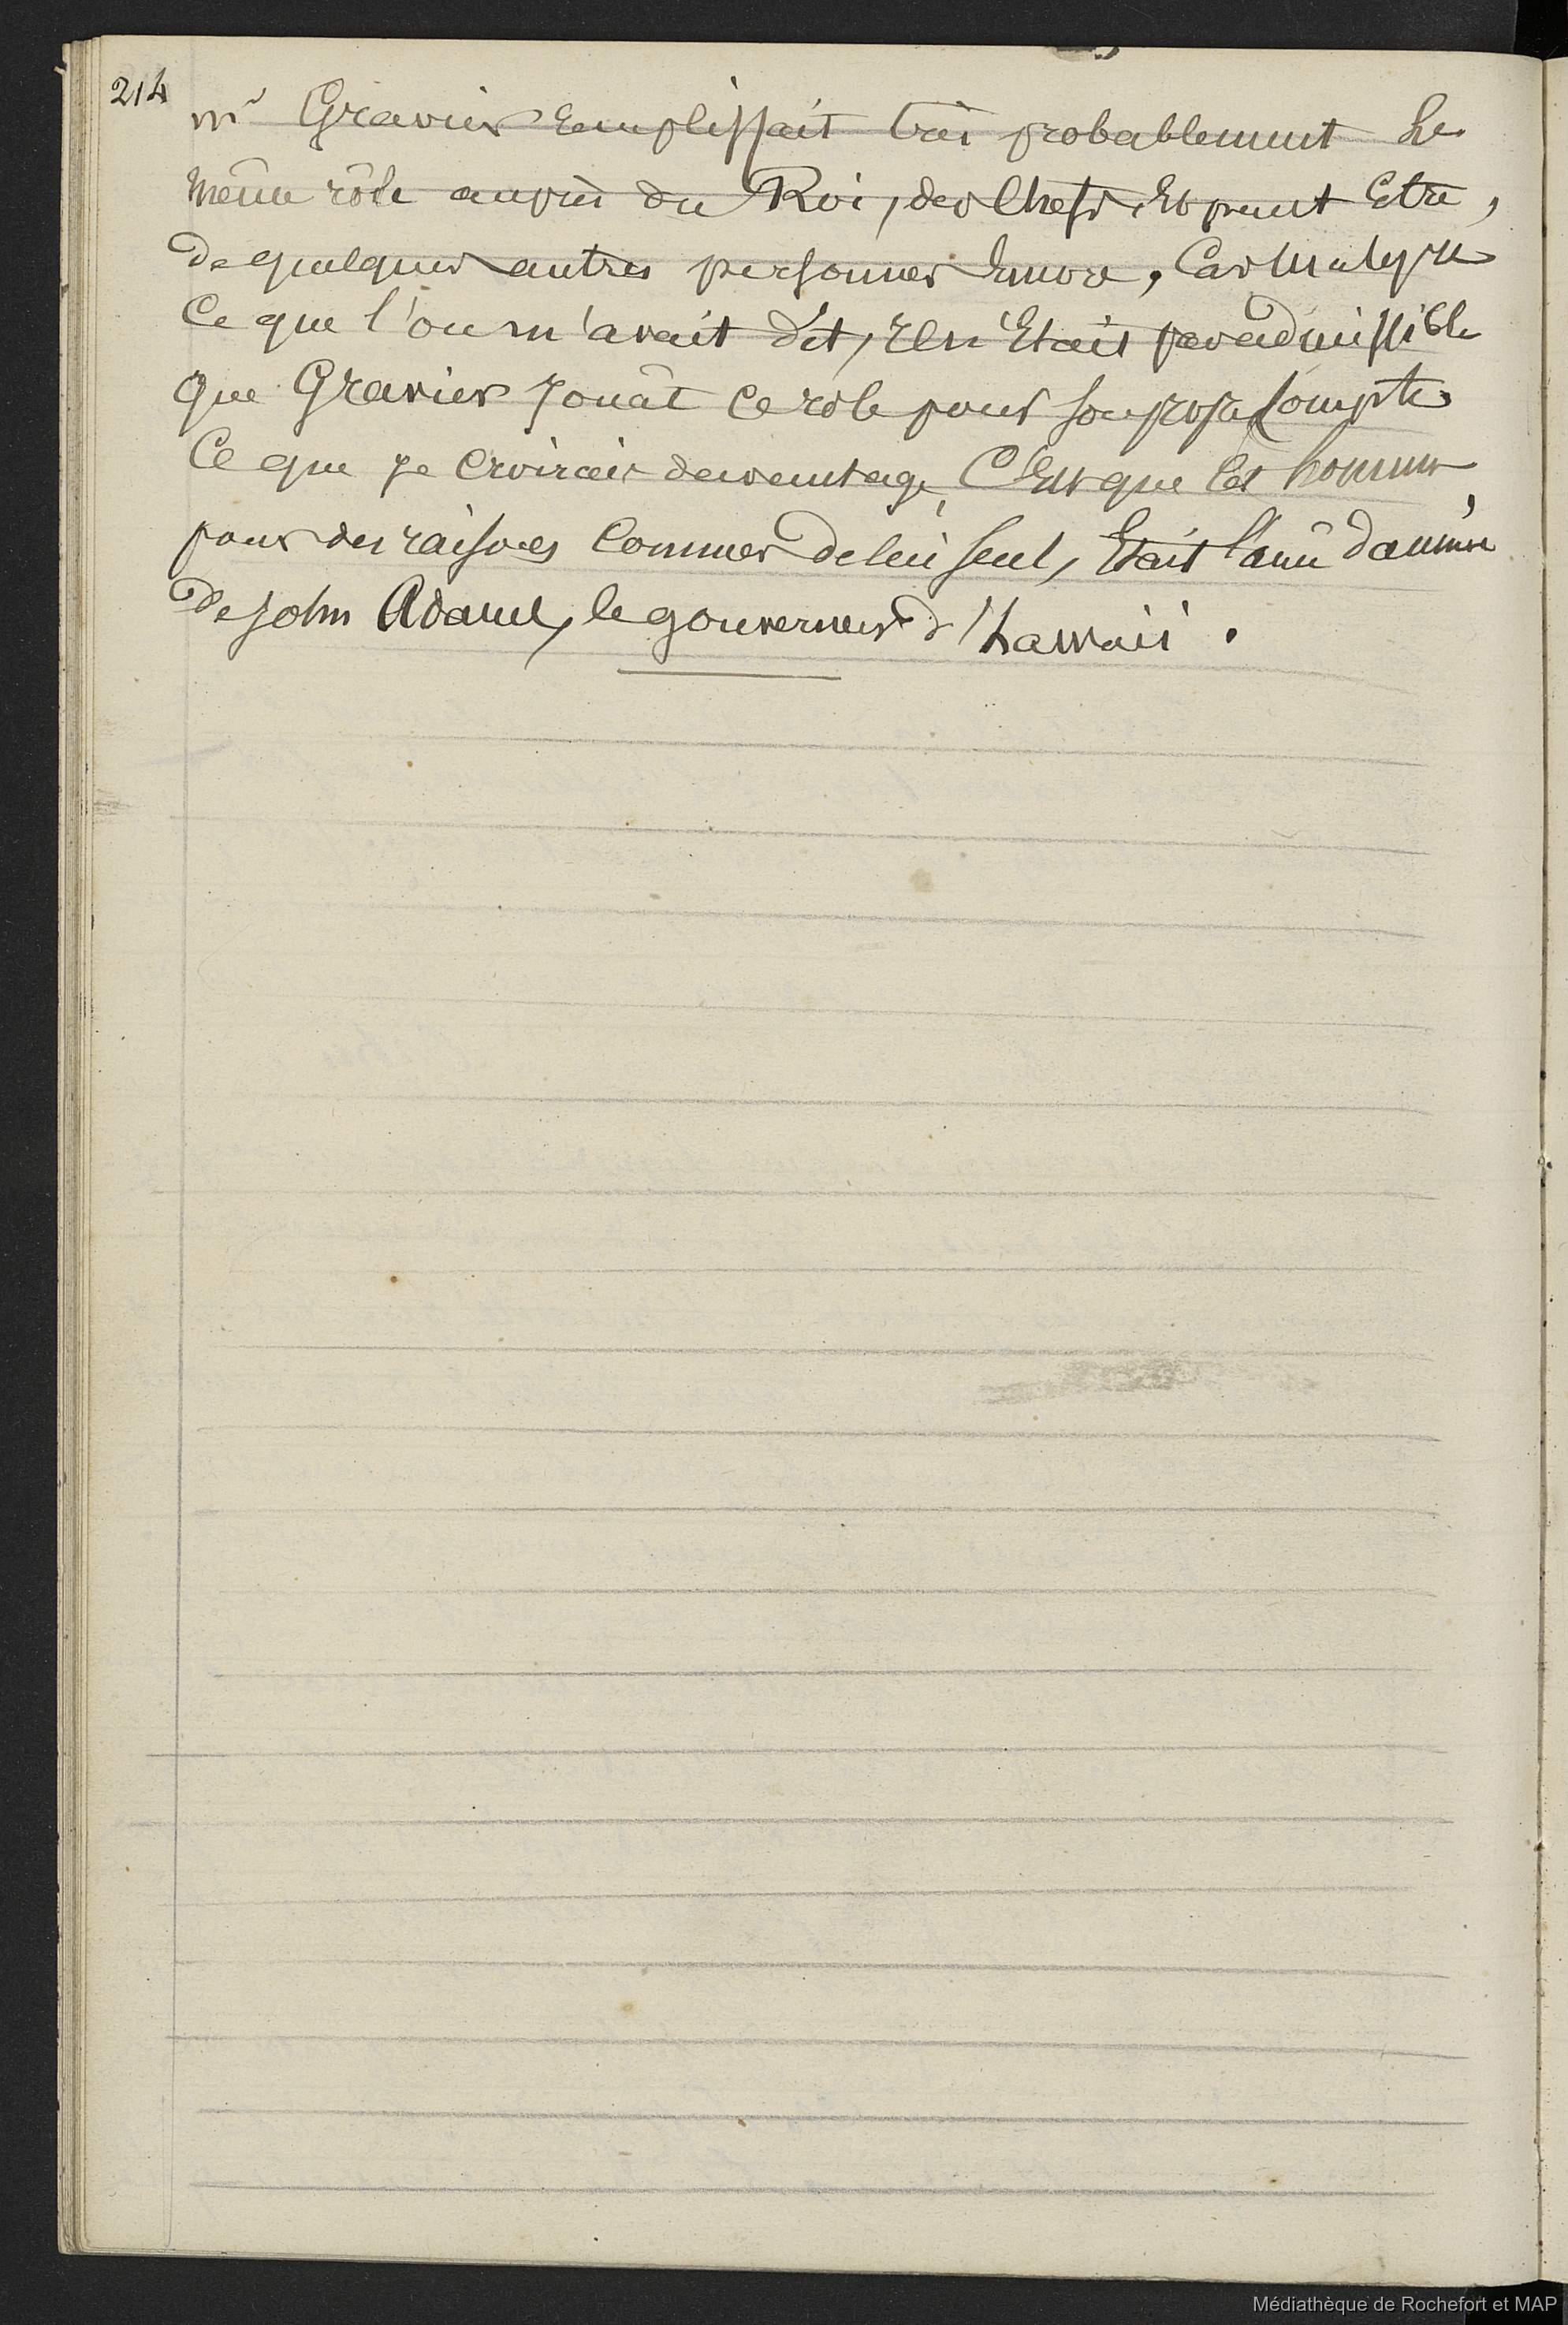 214
mr Gravier remplissait très probablement le
même rôle auprès du Roi, des Chefs, Et peut Etre,
de quelques autres personnes Encore, Car malgré
Ce que l'on m'avait dit, Il n'Etait pas admissible
que Gravier Jouât Ce rôle pour son propre Compte
Ce que Je Croirais davantage, C'Est que Cet homme,
pour des raisons Connues de lui seul, Etait l'ami
de John Adams, le gouverneur d'hawaii.
Médiathèque de Rochefort et MAP